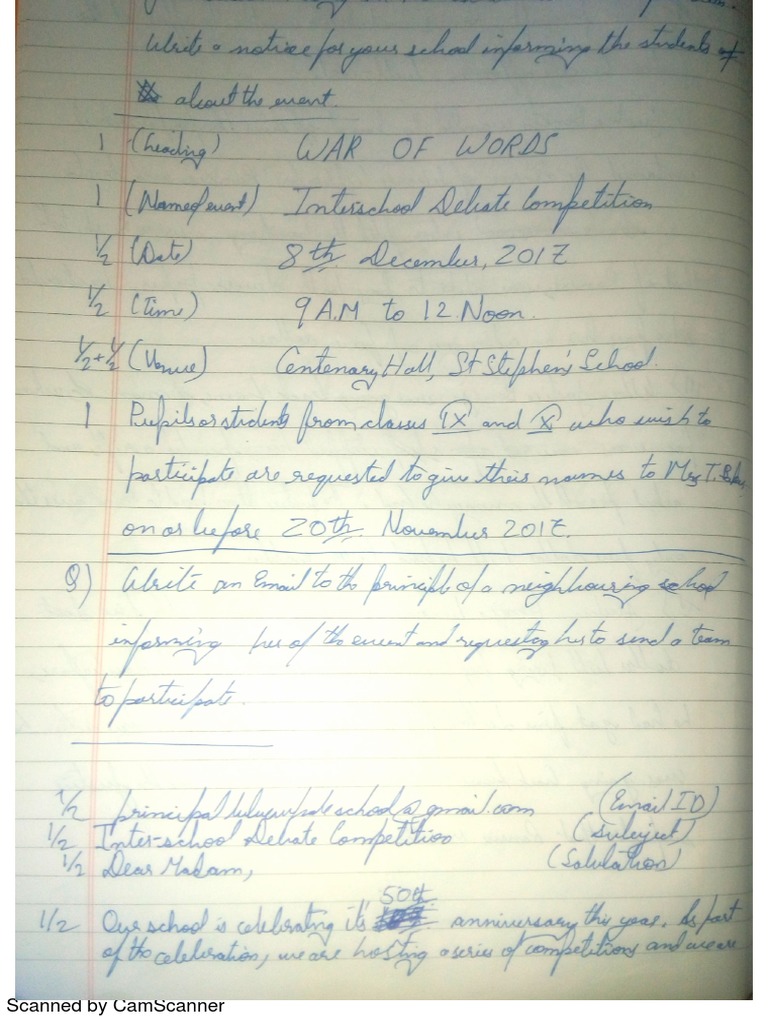 Write a notice for your school informing the students of
about the event.
1 (heading) WAR OF WORDS
1 (Name of event) Interschool Debate Competition
1/2 (Date) 8th December, 2017
1/2 (Time) 9 A.M to 12 Noon.
1/2 + 1/2 (Venue) Centenary Hall, St Stephen's School.
1 Pupils or students from classes IX and X who wish to
participate are requested to give their names to Mrs T.
on or before 20th November 2017.
Q) Write an Email to the principle of a neighbouring school
informing her of the event and requesting her to send a team
to participate.
1/2 @gmail.com (Email ID)
1/2 Inter-school Debate Competition (Subject)
1/2 Dear Madam, (Salutation)
1/2 Our school is celebrating it's 50th anniversary this year. As part
of the celebration, we are hosting a series of competitions and we are
Scanned by CamScanner